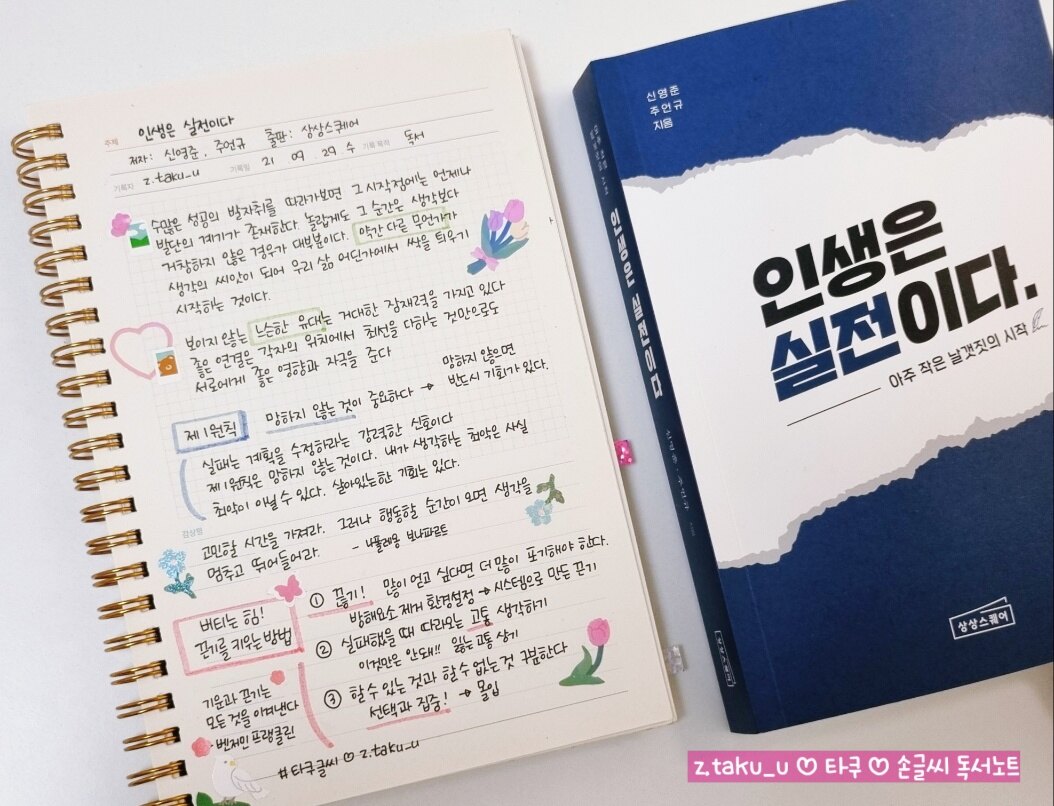 주제 인생은 실전이다
저자: 신영준, 주언규 출판: 상상스퀘어
기록자 z.taku_u 기록일 21 09 29 수 기록 목적 독서
수많은 성공의 발자취를 따라가보면 그 시작점에는 언제나
발단의 계기가 존재한다. 놀랍게도 그 순간은 생각보다
거창하지 않은 경우가 대부분이다. 약간 다른 무언가가
생각의 씨앗이 되어 우리 삶 어딘가에서 싹을 틔우기
시작하는 것이다.
보이지 않는 느슨한 유대는 거대한 잠재력을 가지고 있다
좋은 연결은 각자의 위치에서 최선을 다하는 것만으로도
서로에게 좋은 영향과 자극을 준다
제 1원칙 망하지 않는 것이 중요하다 → 망하지 않으면
반드시 기회가 있다.
실패는 계획을 수정하라는 강력한 신호이다
제 1원칙은 망하지 않는 것이다. 내가 생각하는 최악은 사실
최악이 아닐 수 있다. 살아있는한 기회는 있다.
감상평
고민할 시간을 가져라. 그러나 행동할 순간이 오면 생각을
멈추고 뛰어들어라. - 나폴레옹 보나파르트
버티는 힘!
끈기를 키우는 방법
① 끊기! 많이 얻고 싶다면 더 많이 포기해야 한다.
방해요소 제거 환경설정 → 시스템으로 만든 끈기
② 실패했을 때 따라오는 고통 생각하기
이것만은 안돼!! 잃는 고통 상기
③ 할 수 있는 것과 할 수 없는 것 구분한다
선택과 집중! → 몰입
기운과 끈기는
모든 것을 이겨낸다
- 벤저민 프랭클린
#타쿠글씨 ♡ z.taku_u
인생은 실전이다
상상스퀘어
신영준
주언규
지음
인생은
실전이다.
아주 작은 날갯짓의 시작
상상스퀘어
z.taku_u ♡ 타쿠 ♡ 손글씨 독서노트